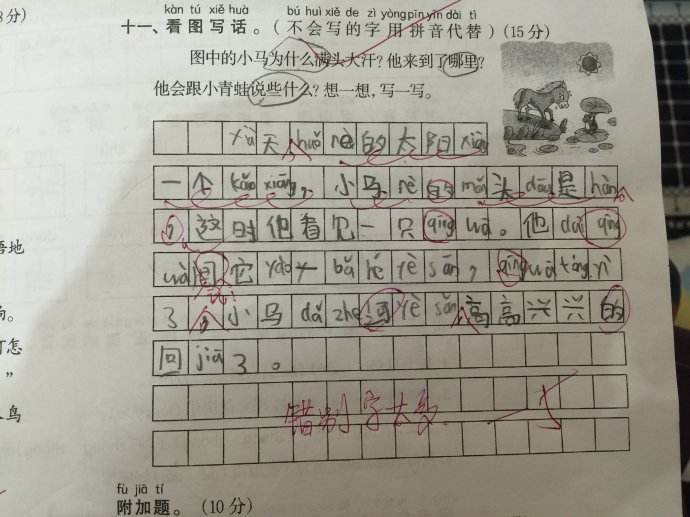 8分)
kàn tú xiě huà bú huì xiě de zì yòng pīn yīn dài tì
十一、看图写话。(不会写的字用拼音代替)(15分)
图中的小马为什么满头大汗?他来到了哪里?
他会跟小青蛙说些什么?想一想,写一写。
xià天 huǒ rè的太阳xiàng
一个kǎo xiāng,小马rè的mǎn头dōu是hàn
这时他看见一只qīng wā。他duì qīng
wā它yào一bǎ hé yè sǎn,qīng wā tóng yì
了小马dǎ zhe河yè sǎn高高兴兴的
回jiā了。
错别字太多 -5
语地
句。
丁怎
”
鸟
fù jiā tí
附加题。(10分)